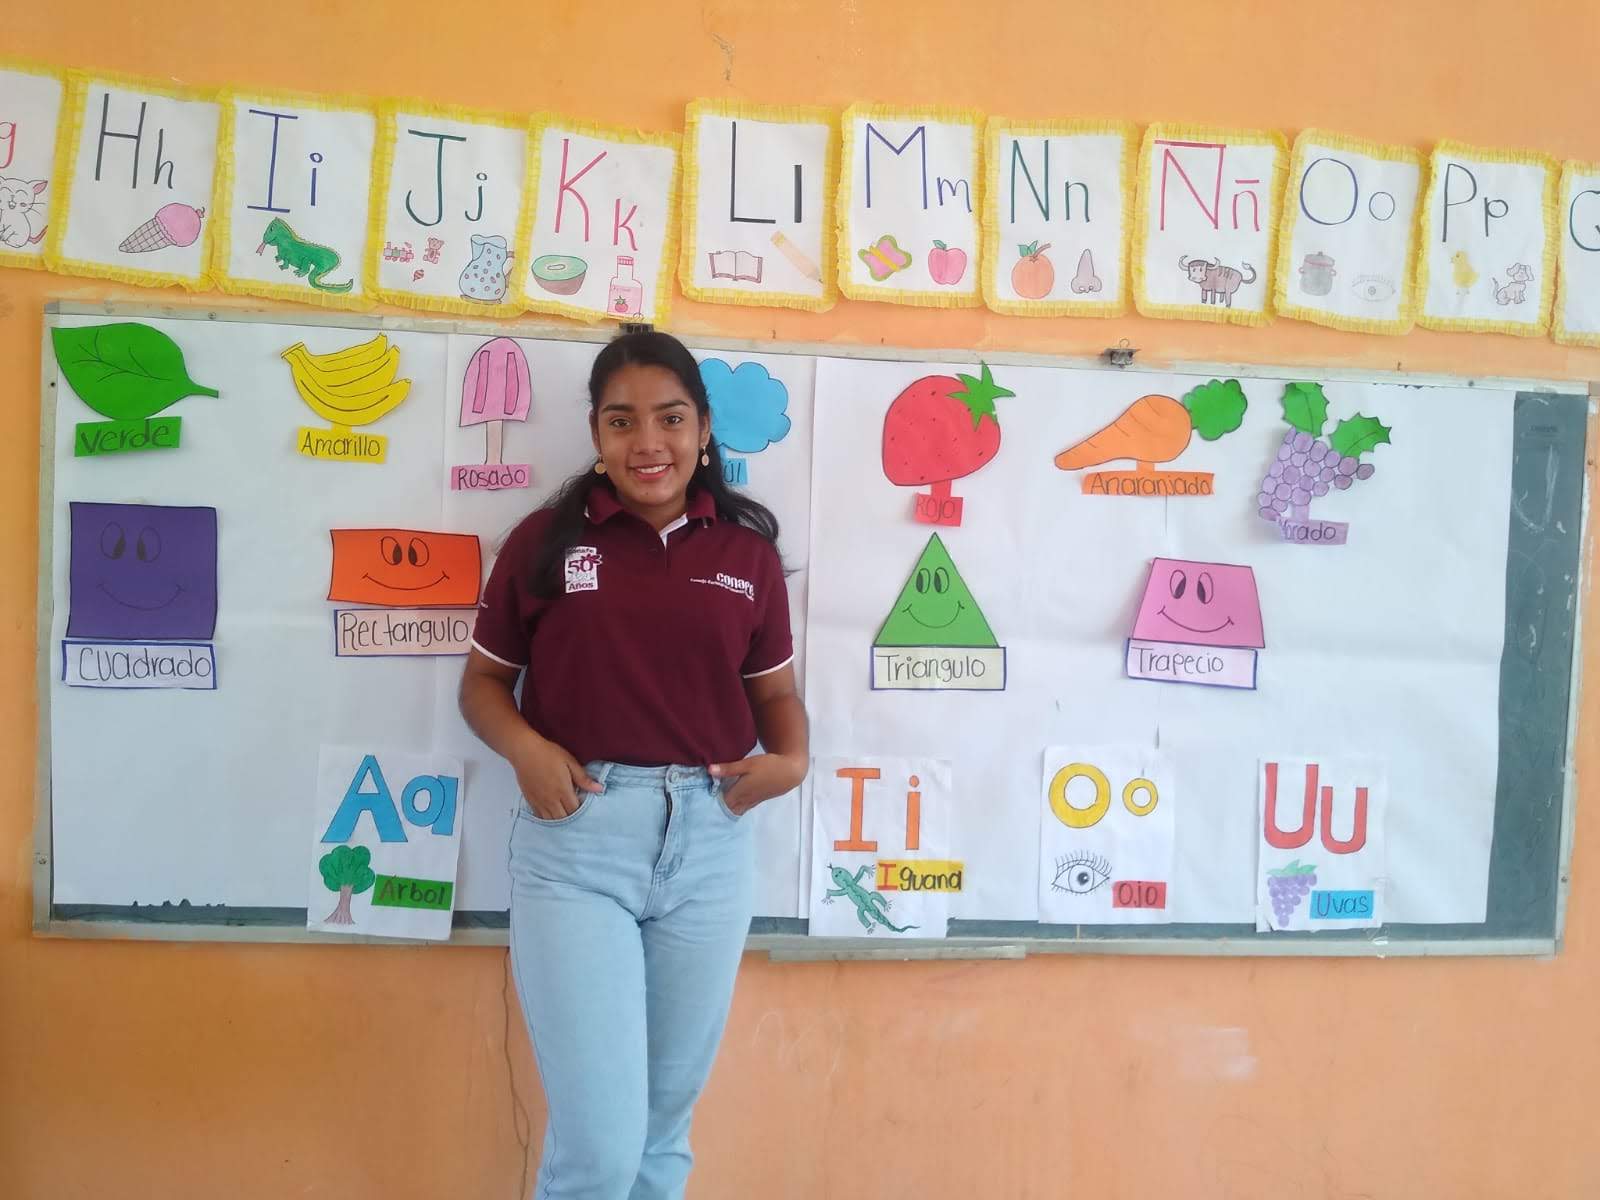 g
Hh
Ii
Jj
Kk
Ll
Mm
Nn
Ññ
Oo
Pp
verde
Amarillo
Rosado
úl
Rojo
Anaranjado
Morado
Cuadrado
Rectangulo
Triangulo
Trapecio
conafe
50
Años
conafe
Aa
Árbol
Ii
Iguana
Oo
Ojo
Uu
Uvas